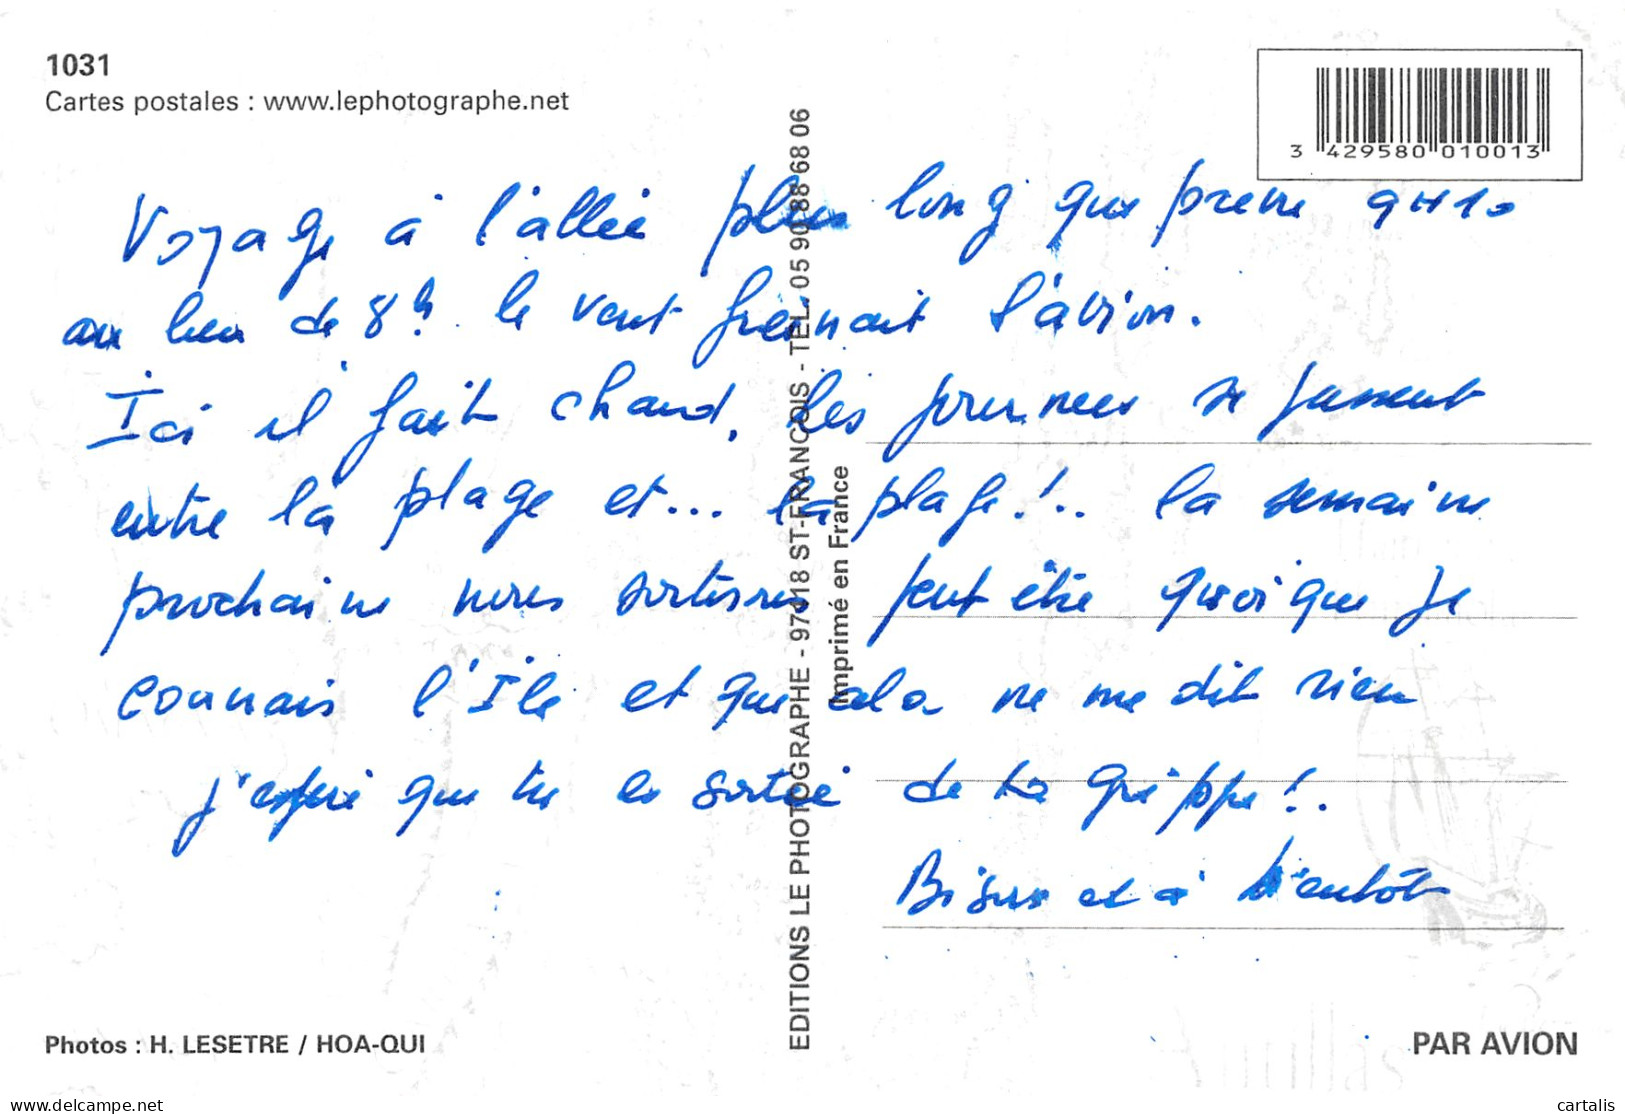 1031
Cartes postales : www.lephotographe.net
3 429580 010013
Voyage à l'allée plus long que prévu 9H10
au lieu de 8h. le vent freinait l'avion.
Ici il fait chaud, les journées se passent
entre la plage et... la plage !.. la semaine
prochaine nous sortirons peut être quoique je
connais l'Ile et que cela ne me dit rien
j'espère que tu es sortie de la grippe !.
Bisous et à bientôt
EDITIONS LE PHOTOGRAPHE - 97118 ST-FRANCOIS - TEL. 05 90 88 68 06
Imprimé en France
Photos : H. LESETRE / HOA-QUI
PAR AVION
www.delcampe.net
cartalis